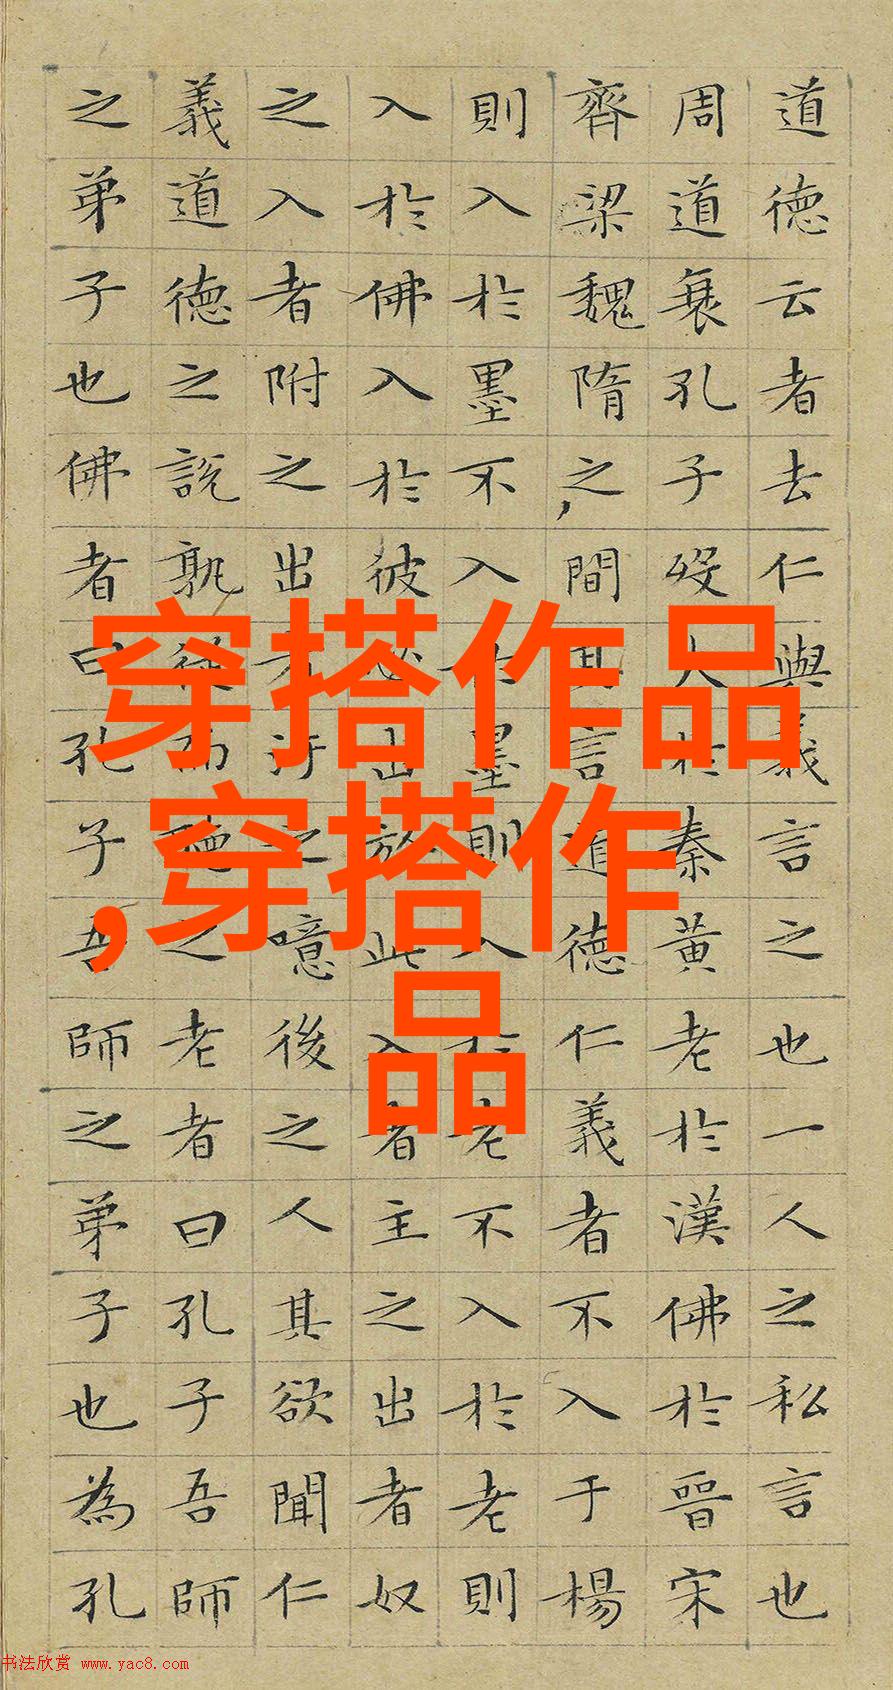 道德云者去仁與義言之也一人之私言也
周道衰孔子歿人於秦黃老於漢佛於晉宋
齊梁魏隋之間其言道德仁義者不入于楊
則入於墨不入於墨則入於老不入於老則
入於佛入於彼必出於此入者主之出者奴
之入者附之出者汙之噫後之人其欲聞仁
義道德之說孰從而聽之老者曰孔子吾師
之弟子也佛者曰孔子吾師之弟子也為孔
穿搭作品
,穿搭作
品
书法欣赏 www.yac8.com